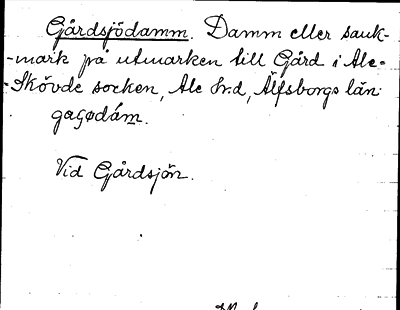 Gårdsjödamm. Damm eller sank-
-mark på utmarken till Gård i Ale-
-Skövde socken, Ale hrd, Älfsborgs län
Vid Gårdsjön.